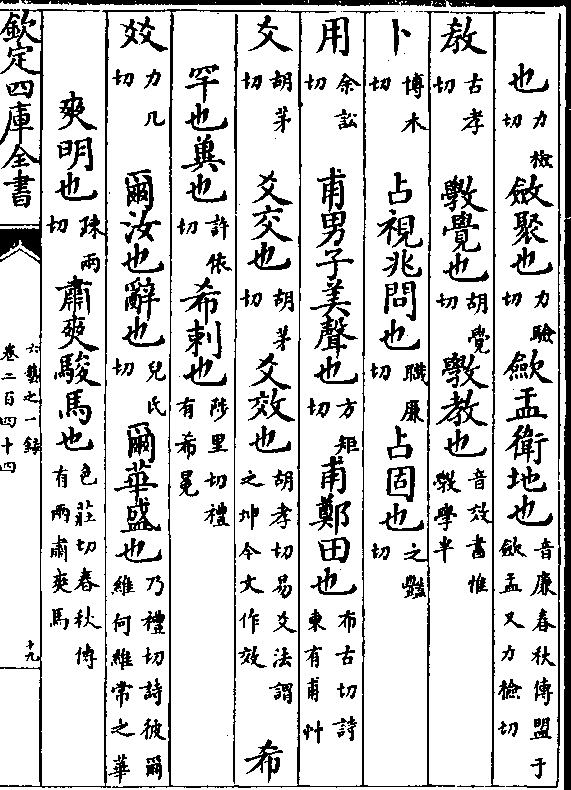 也力檢切斂聚也力驗切歛盂衛地也音廉春秋傳盟于歛盂又力檢切
教古孝切斆覺也胡覺切斆教也音效書惟斆學半
卜博木切占視兆問也職廉切占固也之豔切
用余訟切甫男子美聲也方矩切甫鄭田也布古切詩東有甫艸
爻胡茅切爻交也胡茅切爻效也胡孝切易爻法謂之坤今文作效希
罕也冀也許依切希刺也陟里切禮有希冕
㸚力几切爾汝也辭也兒氏切爾華盛也乃禮切詩彼爾維何維常之華
爽明也踈兩切肅爽駿馬也色莊切春秋傳有兩肅爽馬
欽定四庫全書
六藝之一録
卷二百四十四
十九